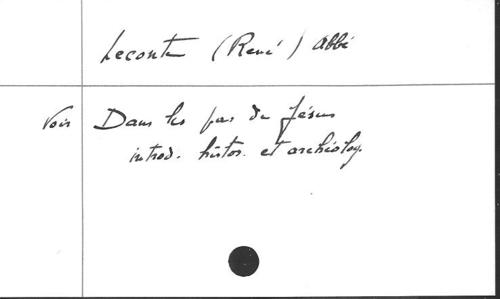 Leconte (René) abbé
Voir Dans les pas de Jésus
introd. histor. et archéolog.